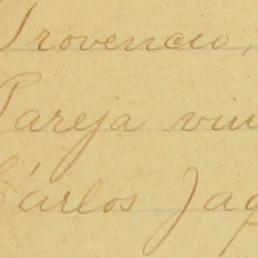 Provencio,
Pareja viu
Cárlos Jaq